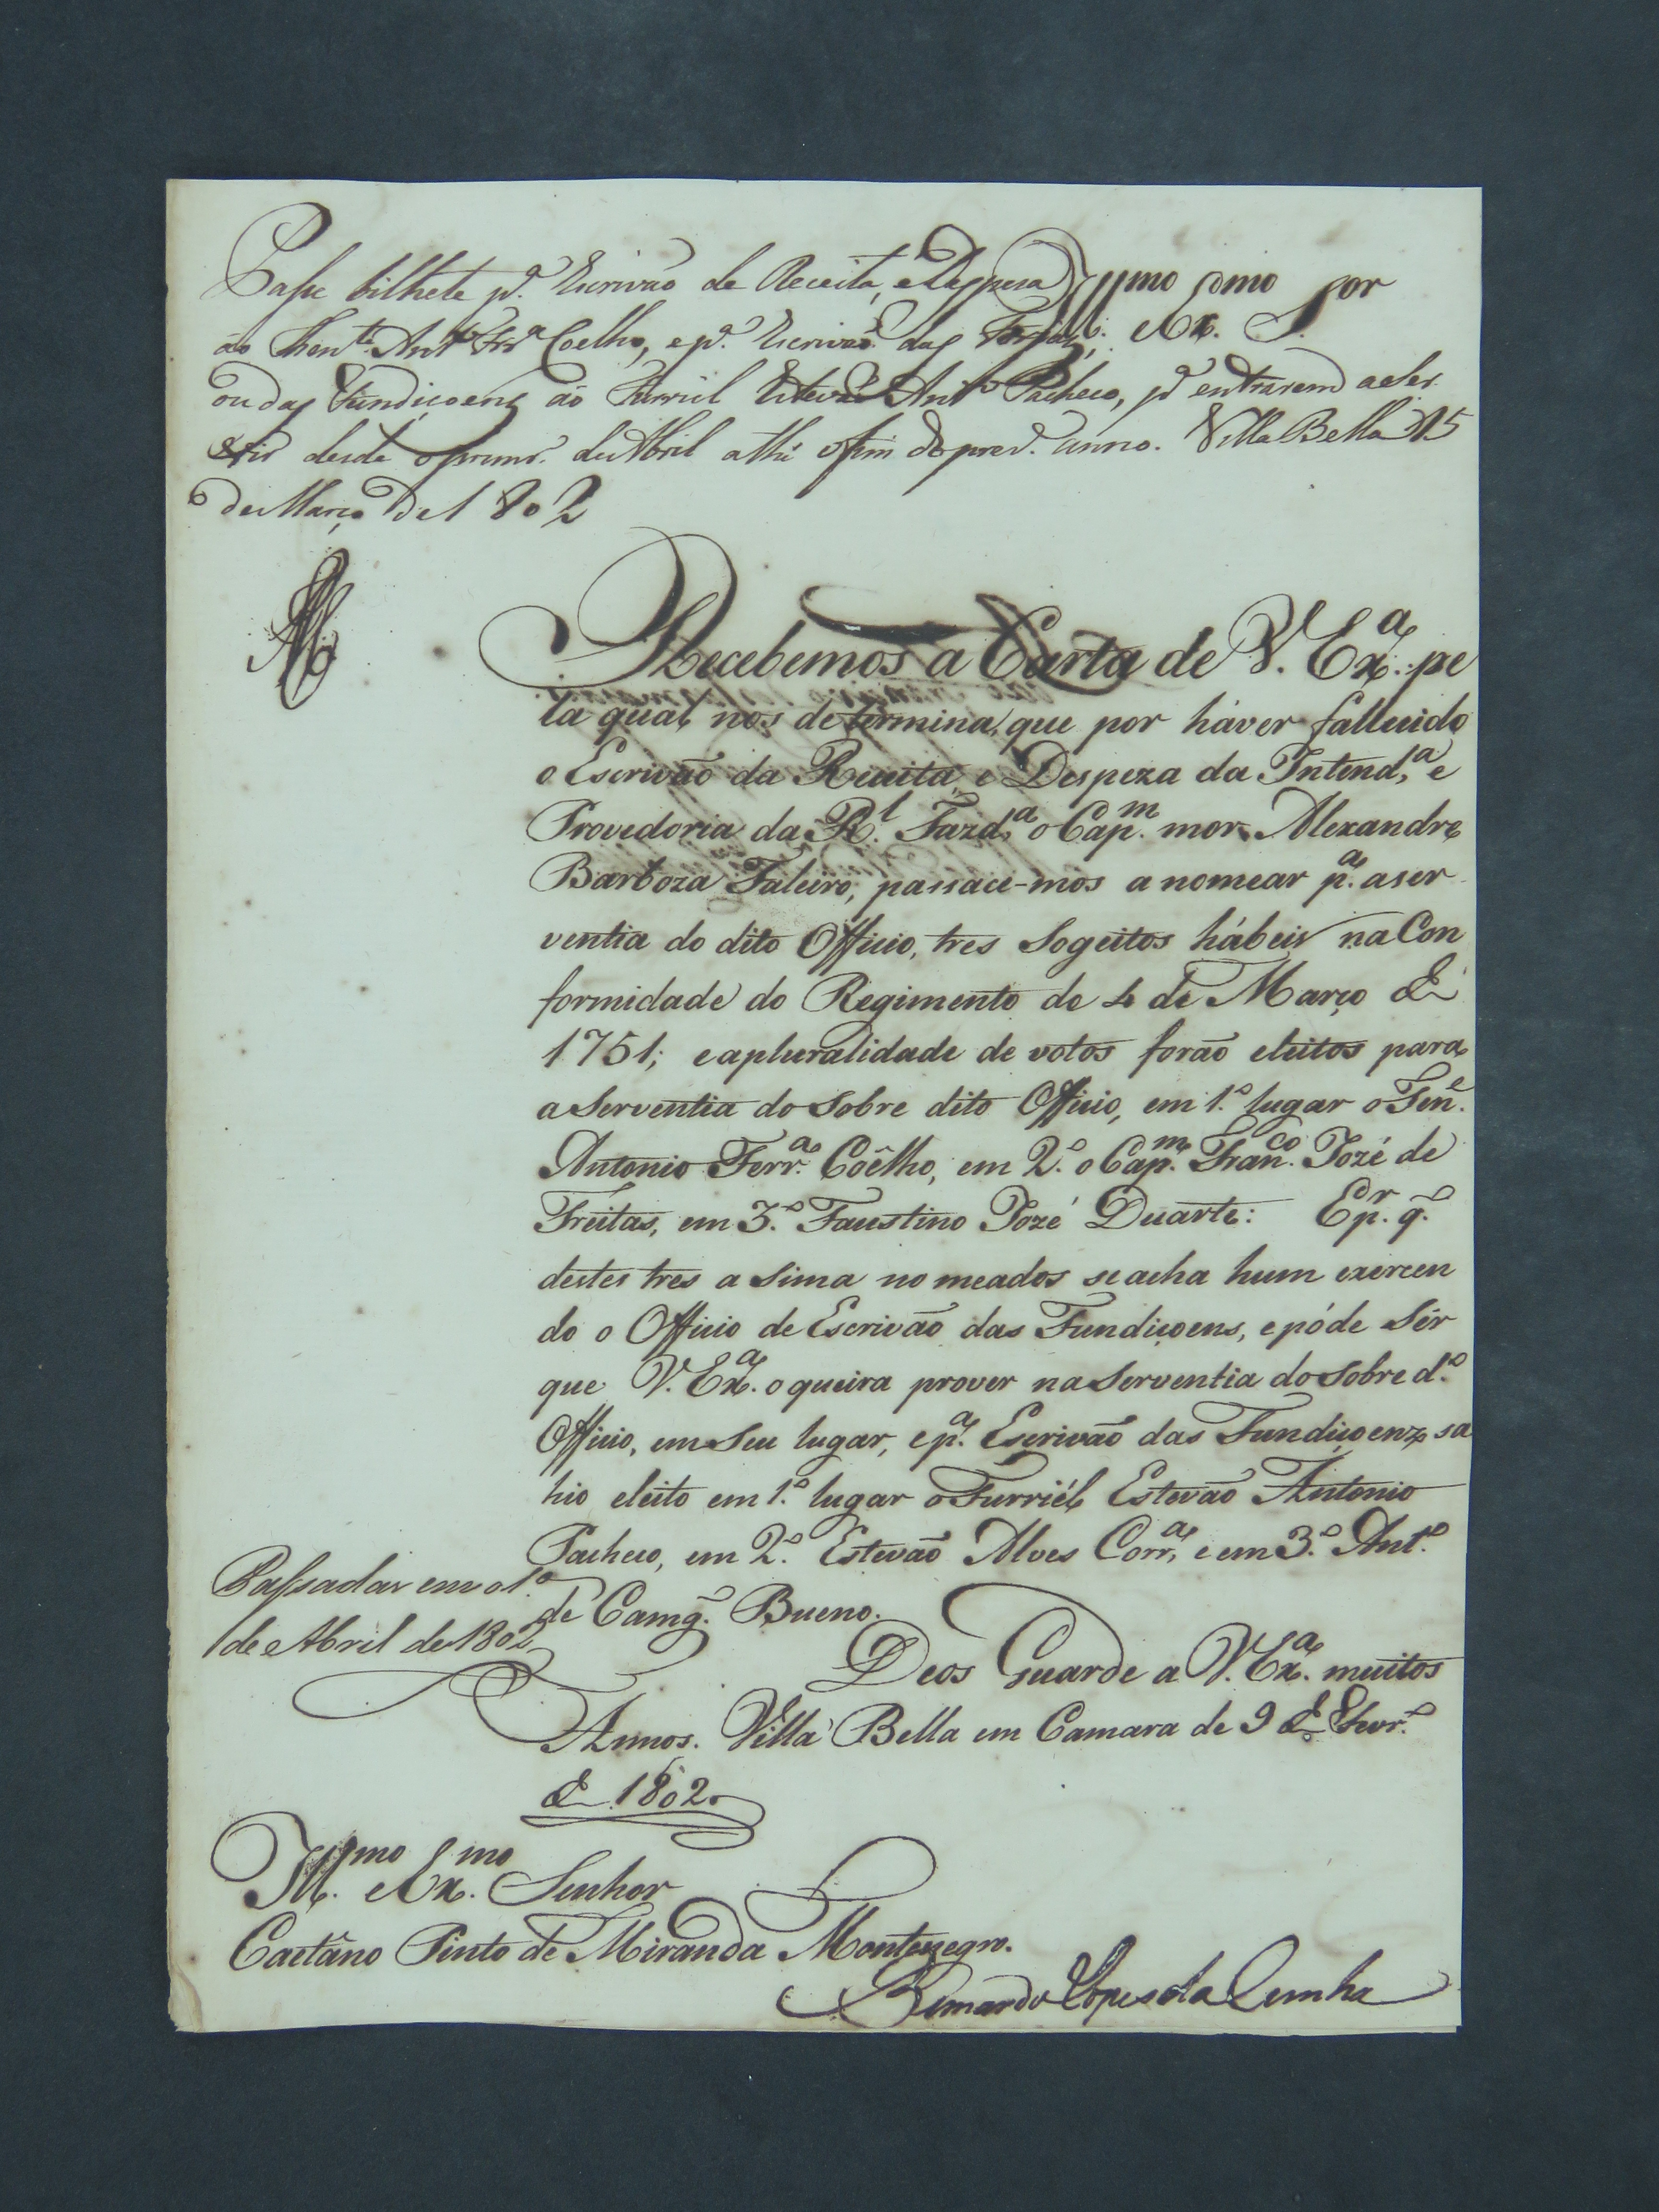 Passe bilhete pª. Escrivão de Receita, e Despesa
Illmo e Exmo Sor
ao Thente. Antº Frrª Coelho, e pª. Escrivão das Forjas,
ou das Fundiçoens áo Furriel Estevão Antº Pacheco, pª entrarem a ser
vir desde o prim.º de Abril athé o fim do prez.e anno. Villa Bella 15
de Março de 1802
Recebemos a Carta de V. Exª. pe
la qual nos determina, que por háver fallecido
o Escrivão da Receita, e Despeza da Intendª, e
Provedoria da Rl. Fazdª, o Capm. mor Alexandre
Barboza Faleiro, passace-mos a nomear pª. a ser
ventia do dito Officio, tres Sogeitos hábeis na Con
formidade do Regimento de 4 de Março de
1751; e a pluralidade de votos forão eleitos para
a Serventia do Sobre dito Officio, em 1º. lugar o Tene.
Antonio Ferrª. Coêlho, em 2º. o Capm. Franco. Jozé de
Freitas, em 3º. Faustino Jozé Duarte: E pr. qº.
destes tres a sima nomeados se acha hum exercen
do o Officio de Escrivão das Fundiçoens, e póde Sêr
que V. Exª. o queira prover na Serventia do Sobre dº.
Officio, em Seu lugar, e pª. Escrivão das Fundiçoenz sa
hio eleito em 1º. lugar o Furriél Estevão Antonio
Pacheco, em 2º. Estevão Alves Corrª, e em 3º. Antº.
de Camgº. Bueno.
Passadas em o 1º.
de Abril de 1802
Deos Guarde a V. Exª. muitos
Annos. Villa Bella em Camara de 9 de Fevrº.
de 1802.
Illmo. e Exmo. Senhor
Caetâno Pinto de Miranda Montenegro.
Bernardo Lopes da Cunha